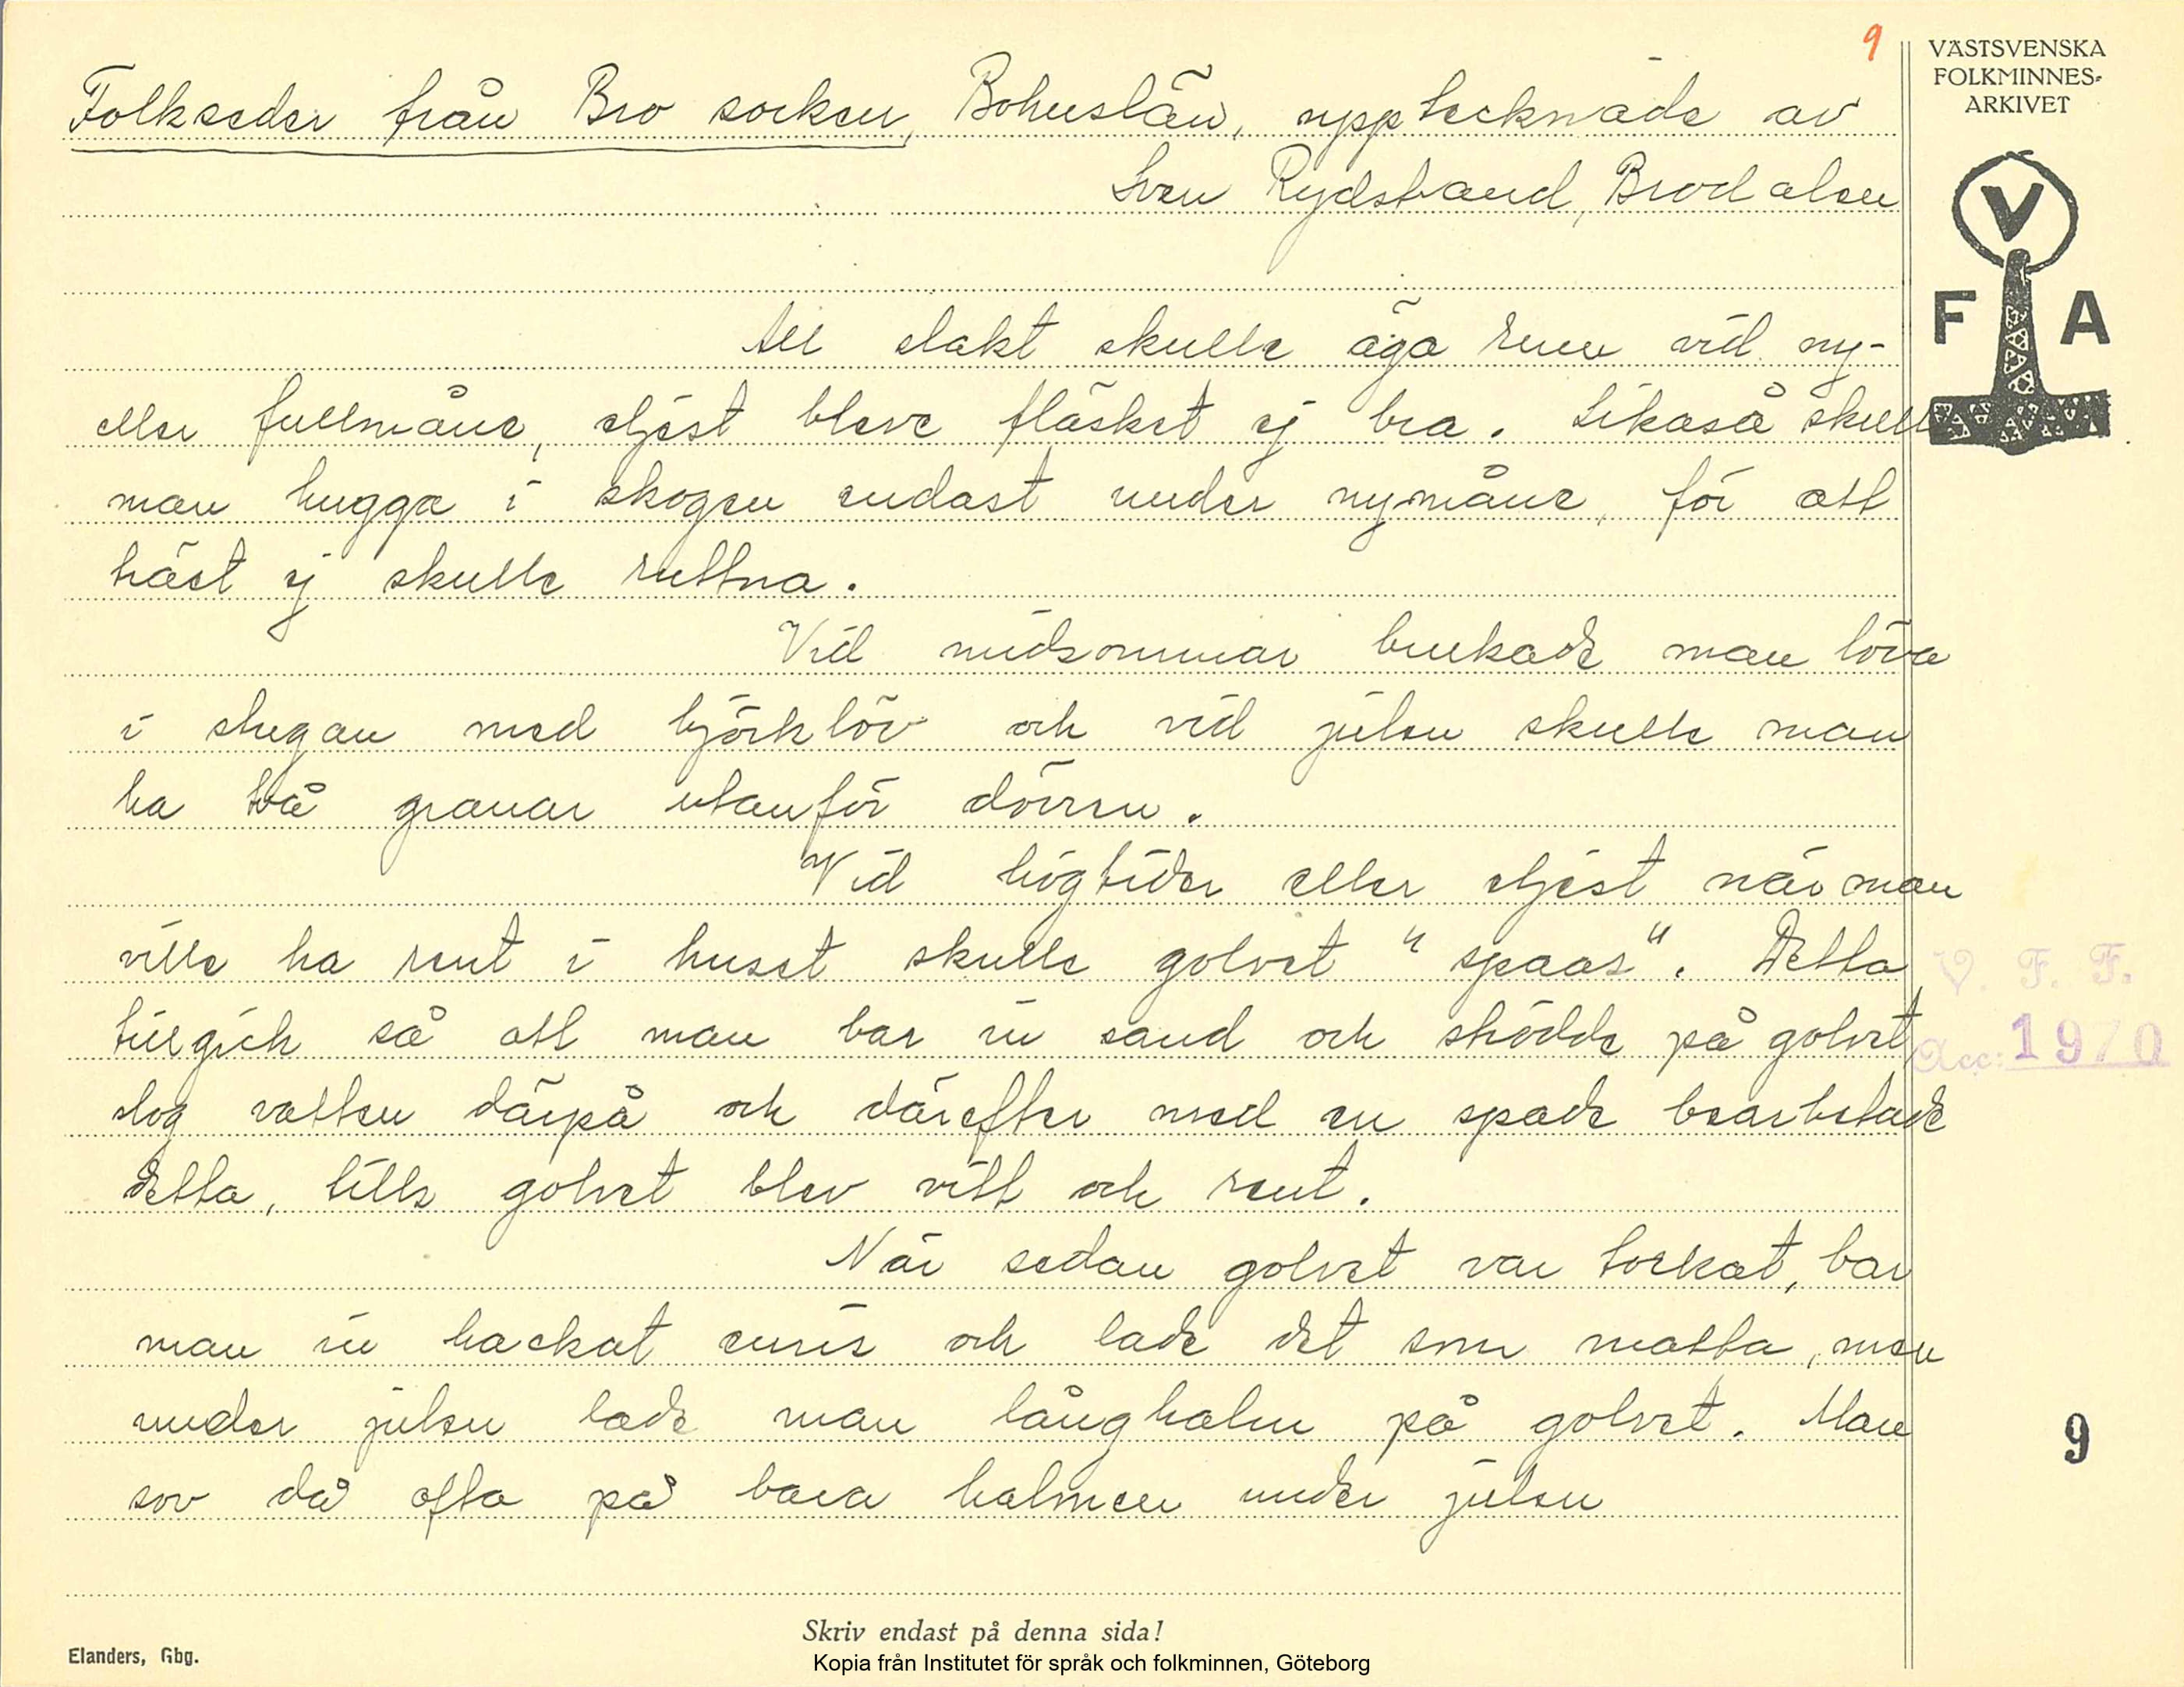 9
VÄSTSVENSKA
FOLKMINNES-
ARKIVET
V
F A
Folkseder från Bro socken, Bohuslän, upptecknade av
Sven Rydstrand, Brodalen
All slakt skulle äga rum vid ny-
eller fullmåne, eljest bleve fläsket ej bra. Likaså skulle
man hugga i skogen endast under nymåne, för att
träet ej skulle ruttna.
Vid midsommar brukade man löva
i stugan med björklöv och vid julen skulle man
ha två granar utanför dörren.
Vid högtider eller eljest när man
ville ha rent i huset skulle golvet "spaas". Detta
tillgick så att man bar in sand och strödde på golvet,
slog vatten därpå och därefter med en spade bearbetade
detta, tills golvet blev vitt och rent.
När sedan golvet var torkat, bar
man in hackat enris och lade det som matta, men
under julen lade man långhalm på golvet. Man
sov då ofta på bara halmen under julen
V. F. F.
Acc: 1970
9
Skriv endast på denna sida!
Elanders, Gbg.
Kopia från Institutet för språk och folkminnen, Göteborg